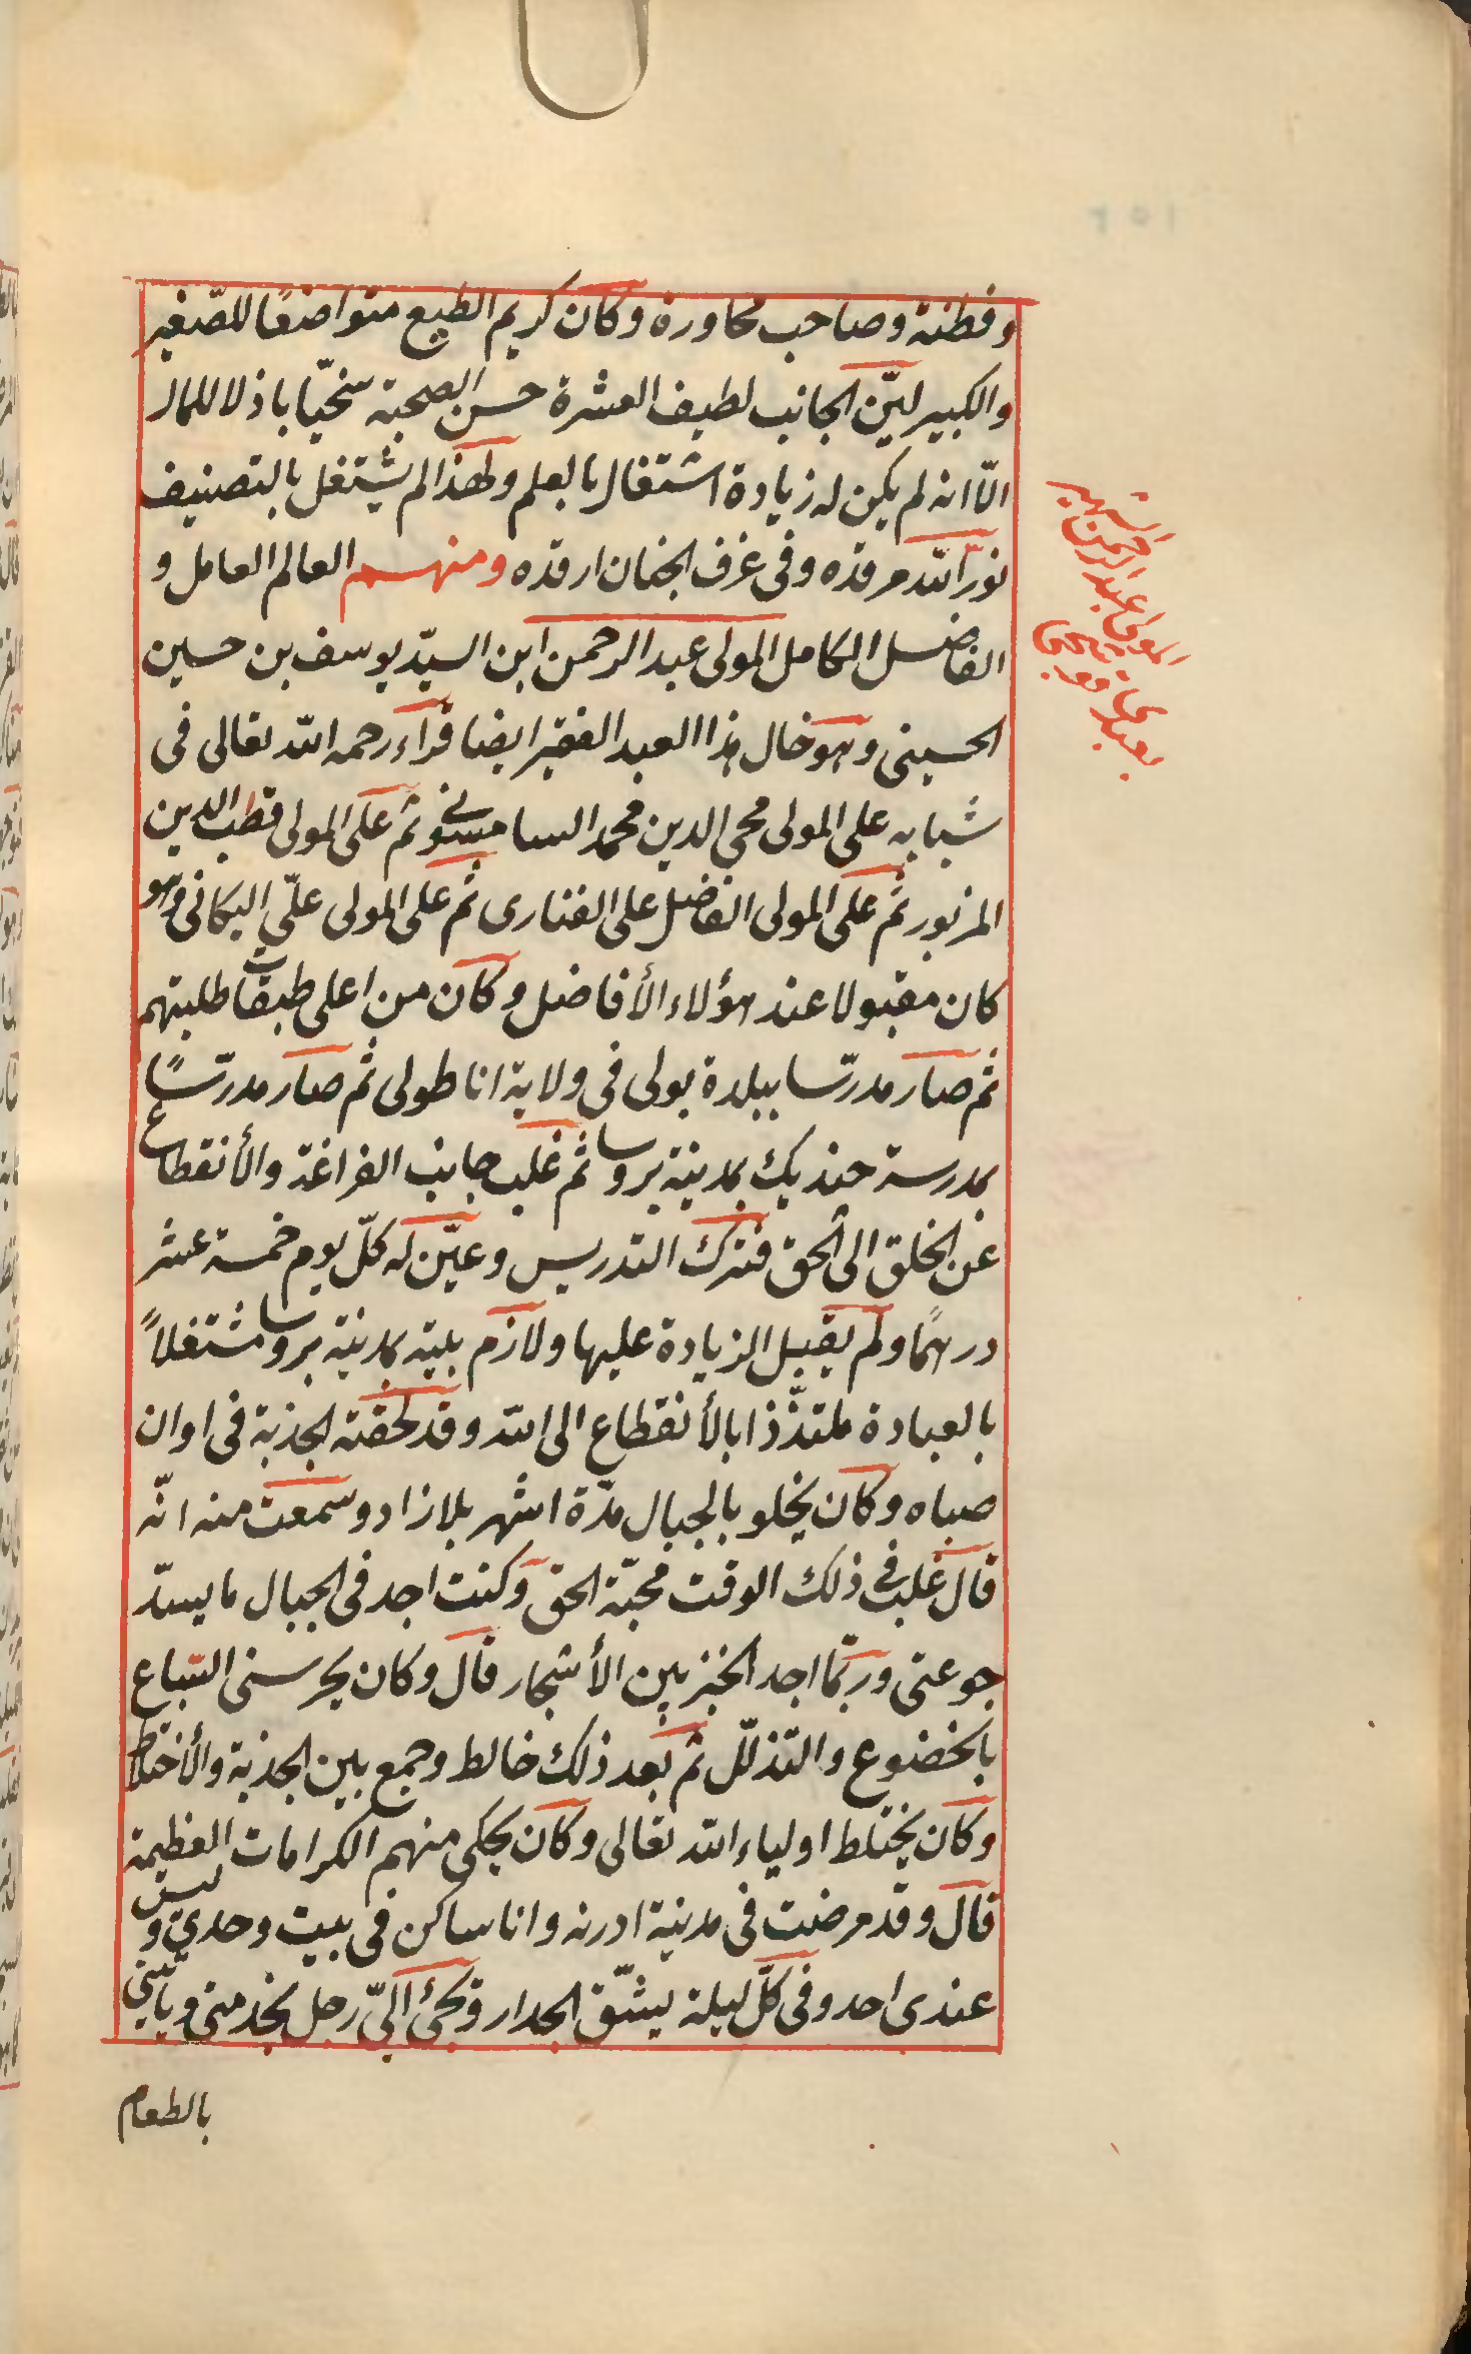 وفطنة وصاحب محاورة وكان كريم الطبع متواضعًا للصّغير
والكبير ليّن الجانب لطيف العشرة حسن الصحبة سخيّا باذلا للمال
الّا انه لم يكن له زيادة اشتغال بالعلم ولهذا لم يشتغل بالتصنيف
نوّر الله مرقده وفى غرف الجنان ارقده ومنهم العالم العامل و
الفاضل الكامل المولى عبد الرحمن ابن السيّد يوسف بن حسين
الحسينى وهو خال هذا العبد الفقير ايضا قرأء رحمه الله تعالى فى
شبابه على المولى محي الدين محمد السامسونى ثم على المولى قطب الدين
المزبور ثم على المولى الفاضل على الفنارى ثم على المولى علّى اليكانى وهو
كان مقبولا عند هؤلاء الأفاضل وكان من اعلى طبقات طلبتهم
ثم صار مدرّسا ببلدة بولى فى ولاية اناطولى ثم صار مدرّسًا
بمدرسة جنديك بمدينة بروسا ثم غلب جانب الفراغة والأنقطاع
عن الخلق الى الحق فترك التدريس وعيّن له كلّ يوم خمسة عشر
درهمًا ولم يقبل الزيادة عليها ولازم بيته بمدينة بروسا مشتغلاً
بالعبادة ملتذّذا بالأنقطاع الى الله وقد لحقته الجذبة فى اوان
صباه وكان يخلو بالجبال مدّة اشهر بلا زاد وسمعت منه انّه
قال غلب فى ذلك الوقت محبّة الحق وكنت اجد فى الجبال ما يسدّ
جوعتى وربّما اجد الخبز بين الأشجار قال وكان يحرسنى السّباع
بالخضوع والتذلّل ثم بعد ذلك خالط وجمع بين الجذبة والأختلاط
وكان يختلط اولياء الله تعالى وكان يحكى منهم الكرامات العظيمة
قال وقد مرضت فى مدينة ادرنه وانا ساكن فى بيت وحدي وليس
عندى احد وفى كلّ ليلة ينشّق الجدار ويجئ الىّ رجل يخدمنى ويأتينى
بالطعام
المولى عبد الرحمن الشهير